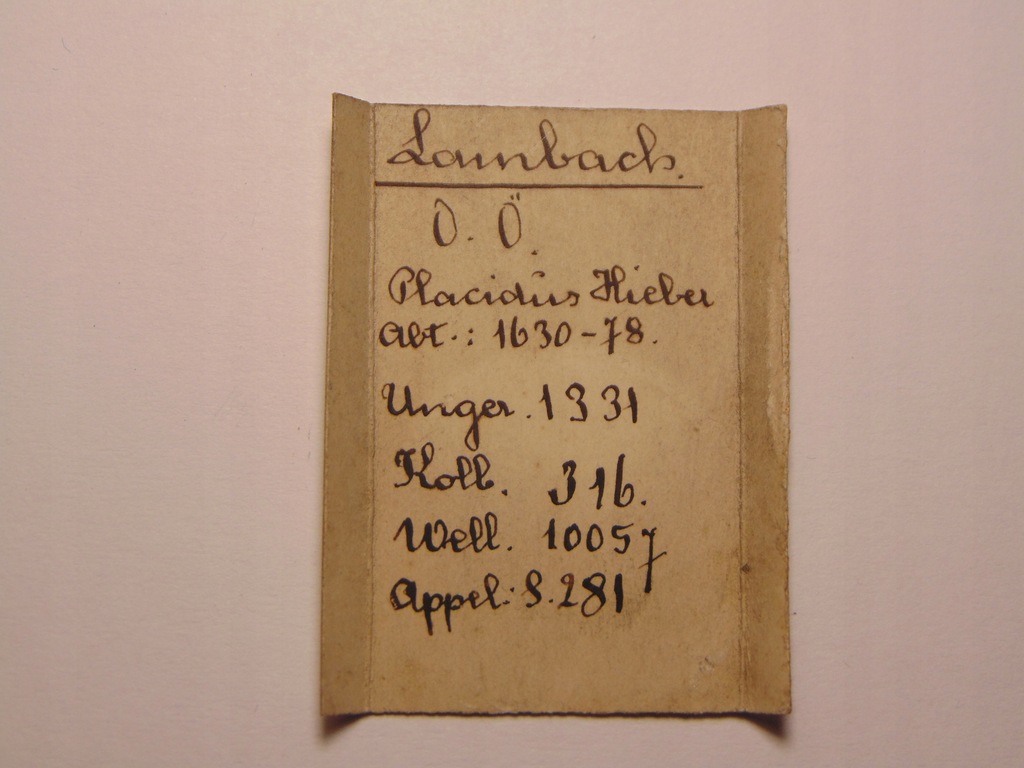 Lambach.
O. Ö.
Placidus Hieber
Abt.: 1630-78.
Unger. 1331
Koll. 316.
Well. 10057
Appel: S. 281